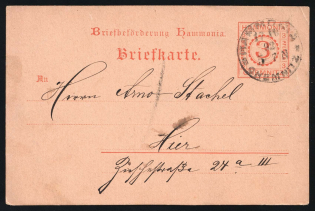 Briefbeförderung Hammonia.
Briefkarte.
An
Herrn Arno Stachel
Hier
24 a III
3